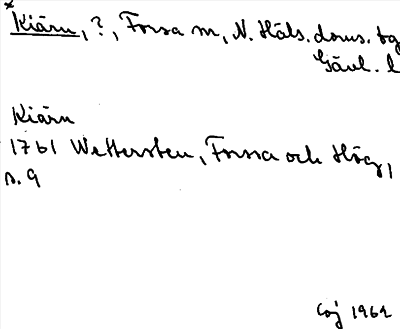 *Kiärn, ?, Forsa sn, N. Häls. doms. tg
Gävl. l
Kiärn
1761 Wettersten, Forssa och Hög,
s. 9
CGj 1961